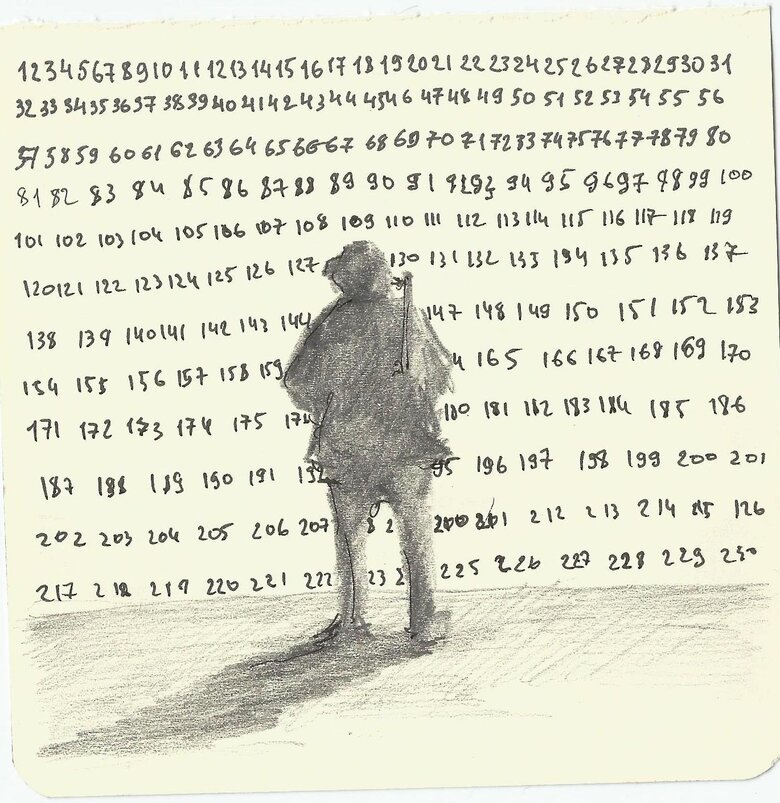 1 2 3 4 5 6 7 8 9 10 11 12 13 14 15 16 17 18 19 20 21 22 23 24 25 26 27 28 29 30 31
32 33 34 35 36 37 38 39 40 41 42 43 44 45 46 47 48 49 50 51 52 53 54 55 56
57 58 59 60 61 62 63 64 65 66 67 68 69 70 71 72 33 74 75 76 77 78 79 80
81 82 83 84 85 86 87 88 89 90 91 92 93 94 95 96 97 98 99 100
101 102 103 104 105 106 107 108 109 110 111 112 113 114 115 116 117 118 119
120 121 122 123 124 125 126 127 130 131 132 133 134 135 136 137
138 139 140 141 142 143 144 147 148 149 150 151 152 153
154 155 156 157 158 159 4 165 166 167 168 169 170
171 172 173 174 175 180 181 182 183 184 185 186
187 188 189 190 191 192 95 196 197 198 199 200 201
202 203 204 205 206 207 8 2 201 212 213 214 126
217 218 219 220 221 222 23 2 225 226 227 228 229 230